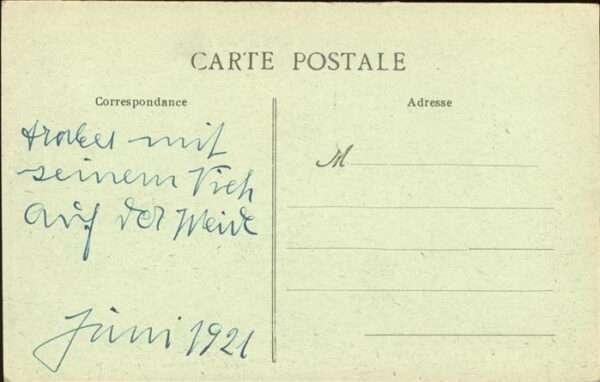 CARTE POSTALE
Correspondance
Adresse
Araber mit
seinem Vieh
auf der Weide
M
Juni 1921